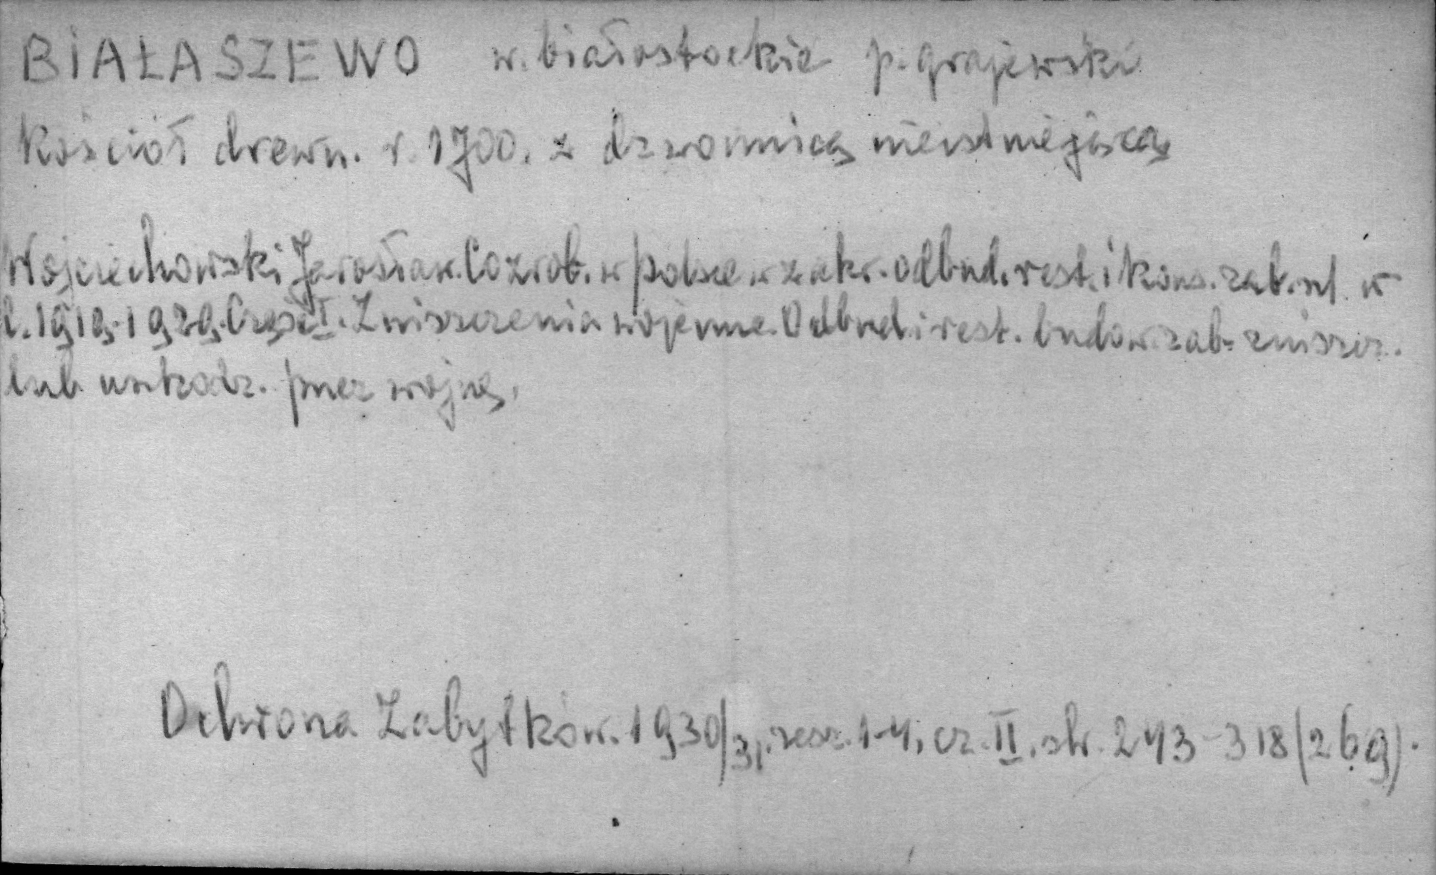 BIAŁASZEWO w. białostockie p. grajewski
Kościół drewn. r. 1700. z dzwonnicą nieistniejącą
Wojciechowski Jarosław. Co zrob. w Polsce w zakr. odbud. rest. i kons. zab. szt. w
l. 1919-1929. Część I. Zniszczenia wojenne. Odbud. i rest. budow. zab. zniszcz.
lub uszkodz. przez wojnę.
Ochrona Zabytków. 1930/31. zesz. 1-4, cz. II. str. 243-318 (269).